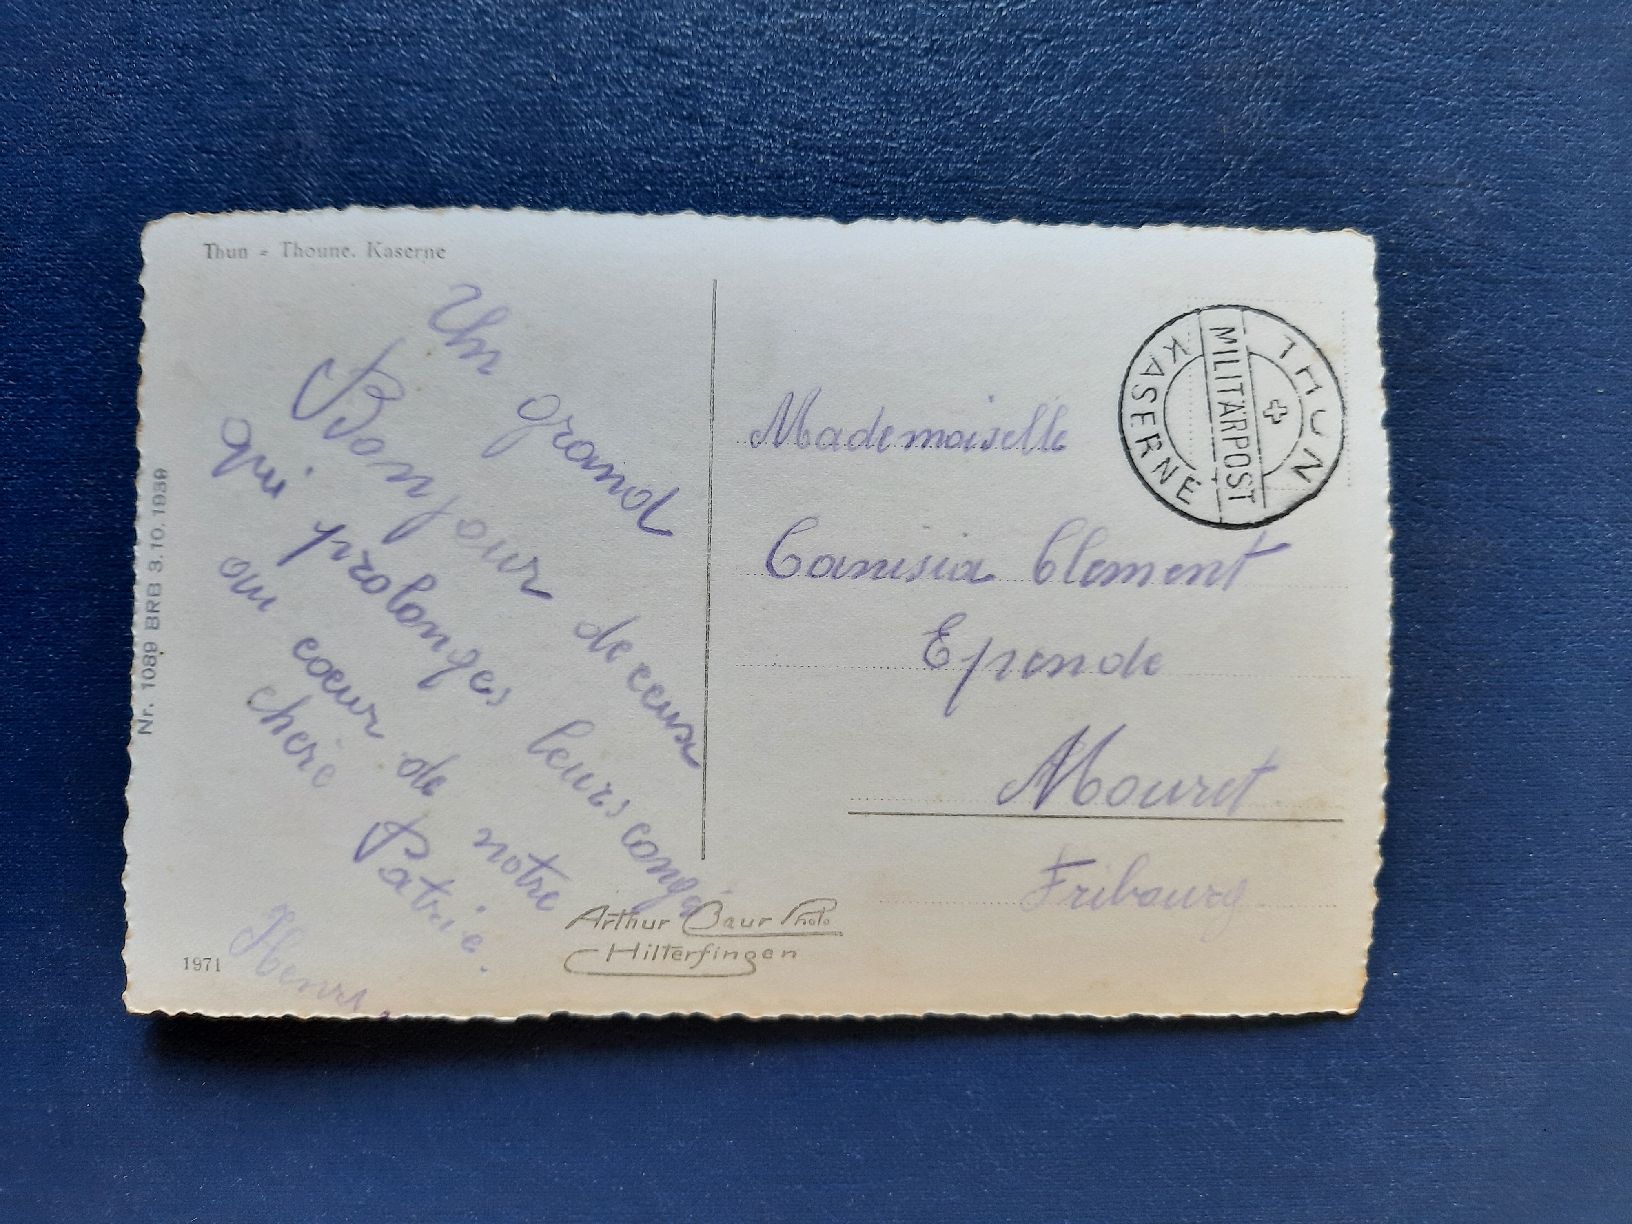 Thun - Thoune. Kaserne
Un grand
Bonjour de ceux
qui prolonges leurs congé
au coeur de notre
chère Patrie.
Henri.
Nr. 1089 BRB 3.10.1939
1971
Arthur Baur Photo
Hilterfingen
THUN
MILITÄRPOST
KASERNE
Mademoiselle
Canisia Clement
Epende
Mouret
Fribourg